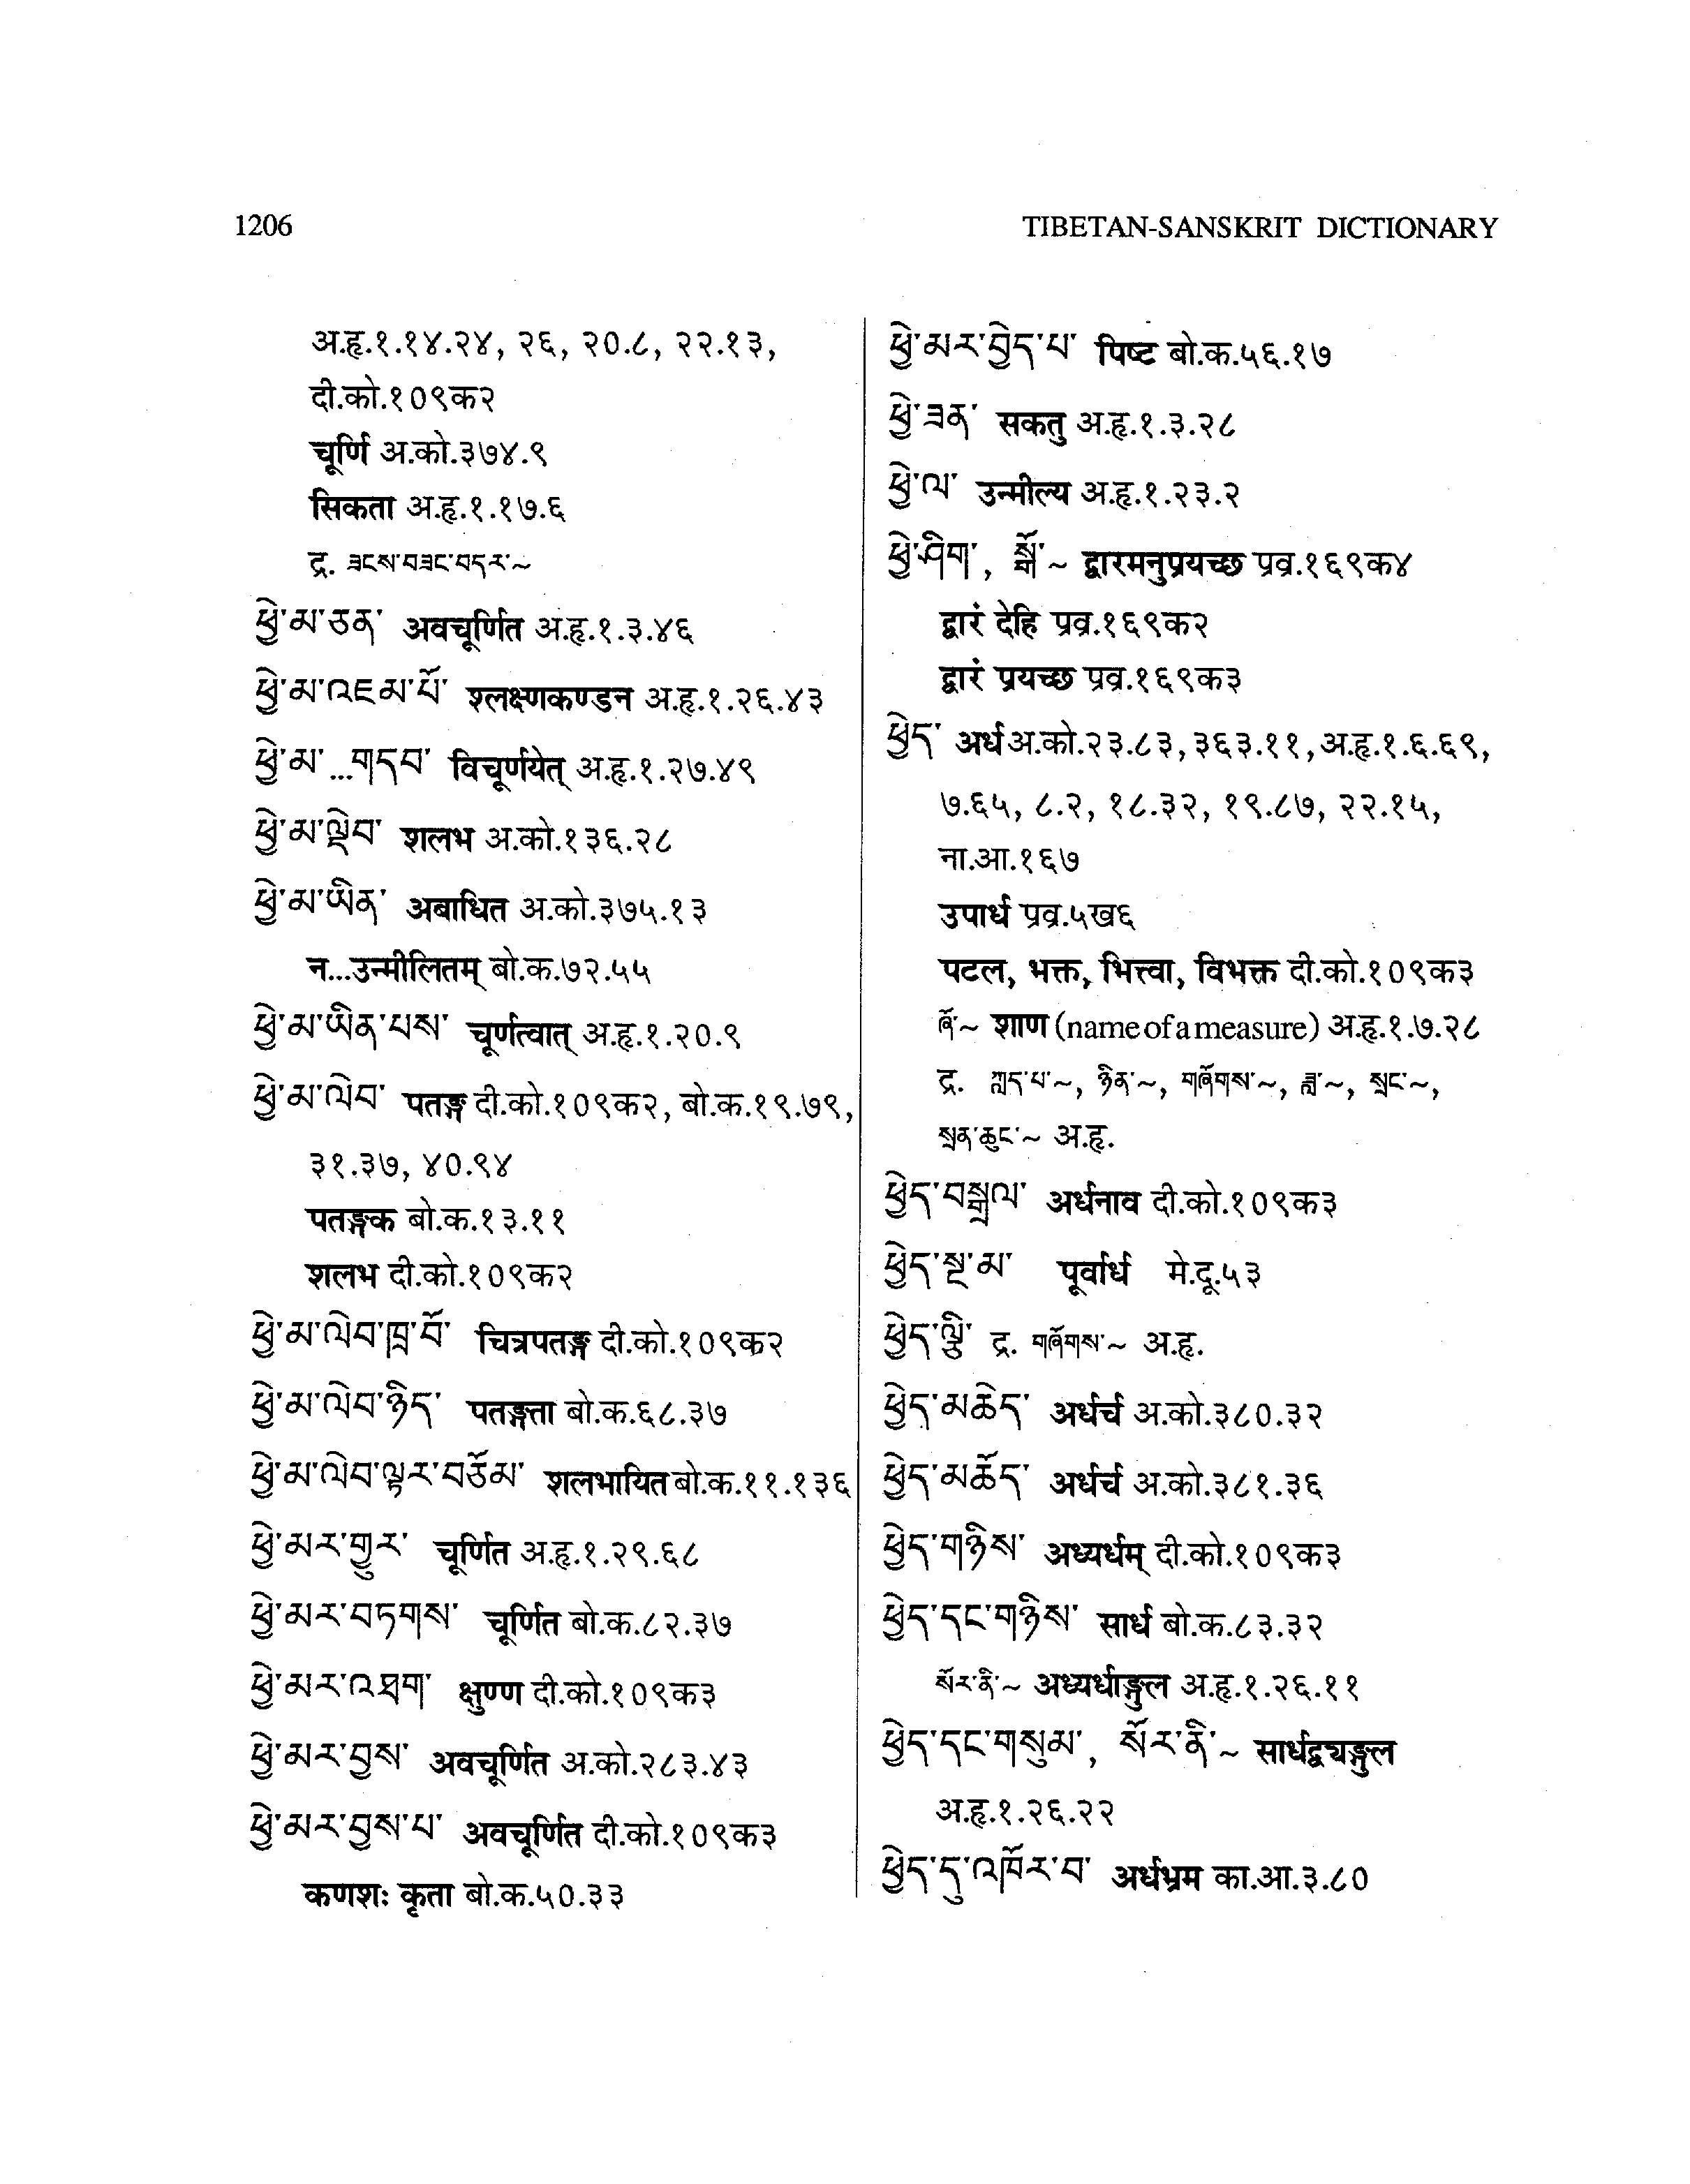 1206
TIBETAN-SANSKRIT DICTIONARY
अ.हृ.१.१४.२४, २६, २०.८, २२.१३,
दी.को.१०९क२
चूर्णि अ.को.३७४.९
सिकता अ.हृ.१.१७.६
द्र. ཟངས་བཟང་བདར་~
ཕྱེ་མ་ཅན་ अवचूर्णित अ.हृ.१.३.४६
ཕྱེ་མ་འཇམ་པོ་ श्लक्ष्णकण्डन अ.हृ.१.२६.४३
ཕྱེ་མ་...གདབ་ विचूर्णयेत् अ.हृ.१.२७.४९
ཕྱེ་མ་ལྡེབ་ शलभ अ.को.१३६.२८
ཕྱེ་མ་ཡིན་ अबाधित अ.को.३७५.१३
न...उन्मीलितम् बो.क.७२.५५
ཕྱེ་མ་ཡིན་པས་ चूर्णत्वात् अ.हृ.१.२०.९
ཕྱེ་མ་ལེབ་ पतङ्ग दी.को.१०९क२, बो.क.१९.७९,
३१.३७, ४०.९४
पतङ्गक बो.क.१३.११
शलभ दी.को.१०९क२
ཕྱེ་མ་ལེབ་ཁྲ་བོ་ चित्रपतङ्ग दी.को.१०९क२
ཕྱེ་མ་ལེབ་ཉིད་ पतङ्गता बो.क.६८.३७
ཕྱེ་མ་ལེབ་ལྟར་བཅོམ་ शलभायित बो.क.११.१३६
ཕྱེ་མར་གྱུར་ चूर्णित अ.हृ.१.२९.६८
ཕྱེ་མར་བཏགས་ चूर्णित बो.क.८२.३७
ཕྱེ་མར་འཐག་ क्षुण्ण दी.को.१०९क३
ཕྱེ་མར་བྱས་ अवचूर्णित अ.को.२८३.४३
ཕྱེ་མར་བྱས་པ་ अवचूर्णित दी.को.१०९क३
कणशः कृता बो.क.५०.३३
ཕྱེ་མར་བྱེད་པ་ पिष्ट बो.क.५६.१७
ཕྱེ་ཟན་ सकतु अ.हृ.१.३.२८
ཕྱེ་ལ་ उन्मील्य अ.हृ.१.२३.२
ཕྱེ་ཤིག་, སྒོ་~ द्वारमनुप्रयच्छ प्रव्र.१६९क४
द्वारं देहि प्रव्र.१६९क२
द्वारं प्रयच्छ प्रव्र.१६९क३
ཕྱེད་ अर्ध अ.को.२३.८३, ३६३.११, अ.हृ.१.६.६९,
७.६५, ८.२, १८.३२, १९.८७, २२.१५,
ना.आ.१६७
उपार्ध प्रव्र.५ख६
पटल, भक्त, भित्त्वा, विभक्त दी.को.१०९क३
ཞོ་~ शाण (name of a measure) अ.हृ.१.७.२८
द्र. ཀླད་པ་~, ཉིན་~, གཞོགས་~, ཟླ་~, སྲང་~,
སྲན་ཆུང་~ अ.हृ.
ཕྱེད་བསྒྲལ་ अर्धनाव दी.को.१०९क३
ཕྱེད་སྔ་མ་ पूर्वार्ध मे.दू.५३
ཕྱེད་ལྕི་ द्र. གཞོགས་~ अ.हृ.
ཕྱེད་མཆེད་ अर्धर्च अ.को.३८०.३२
ཕྱེད་མཆོད་ अर्धर्च अ.को.३८१.३६
ཕྱེད་གཉིས་ अध्यर्धम् दी.को.१०९क३
ཕྱེད་དང་གཉིས་ सार्ध बो.क.८३.३२
སོར་ནི་~ अध्यर्धाङ्गुल अ.हृ.१.२६.११
ཕྱེད་དང་གསུམ་, སོར་ནི་~ सार्धद्व्यङ्गुल
अ.हृ.१.२६.२२
ཕྱེད་དུ་འཁོར་བ་ अर्धभ्रम का.आ.३.८०